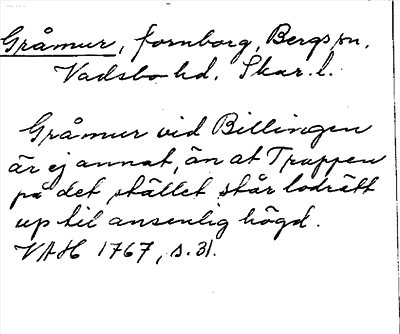 Gråmur, fornborg, Bergs sn.
Vadsbo hd. Skar. l.
Gråmur vid Billingen
är ej annat, än at Trappen
på det stället står lodrätt
up til ansenlig högd.
VAH 1767, s. 31.